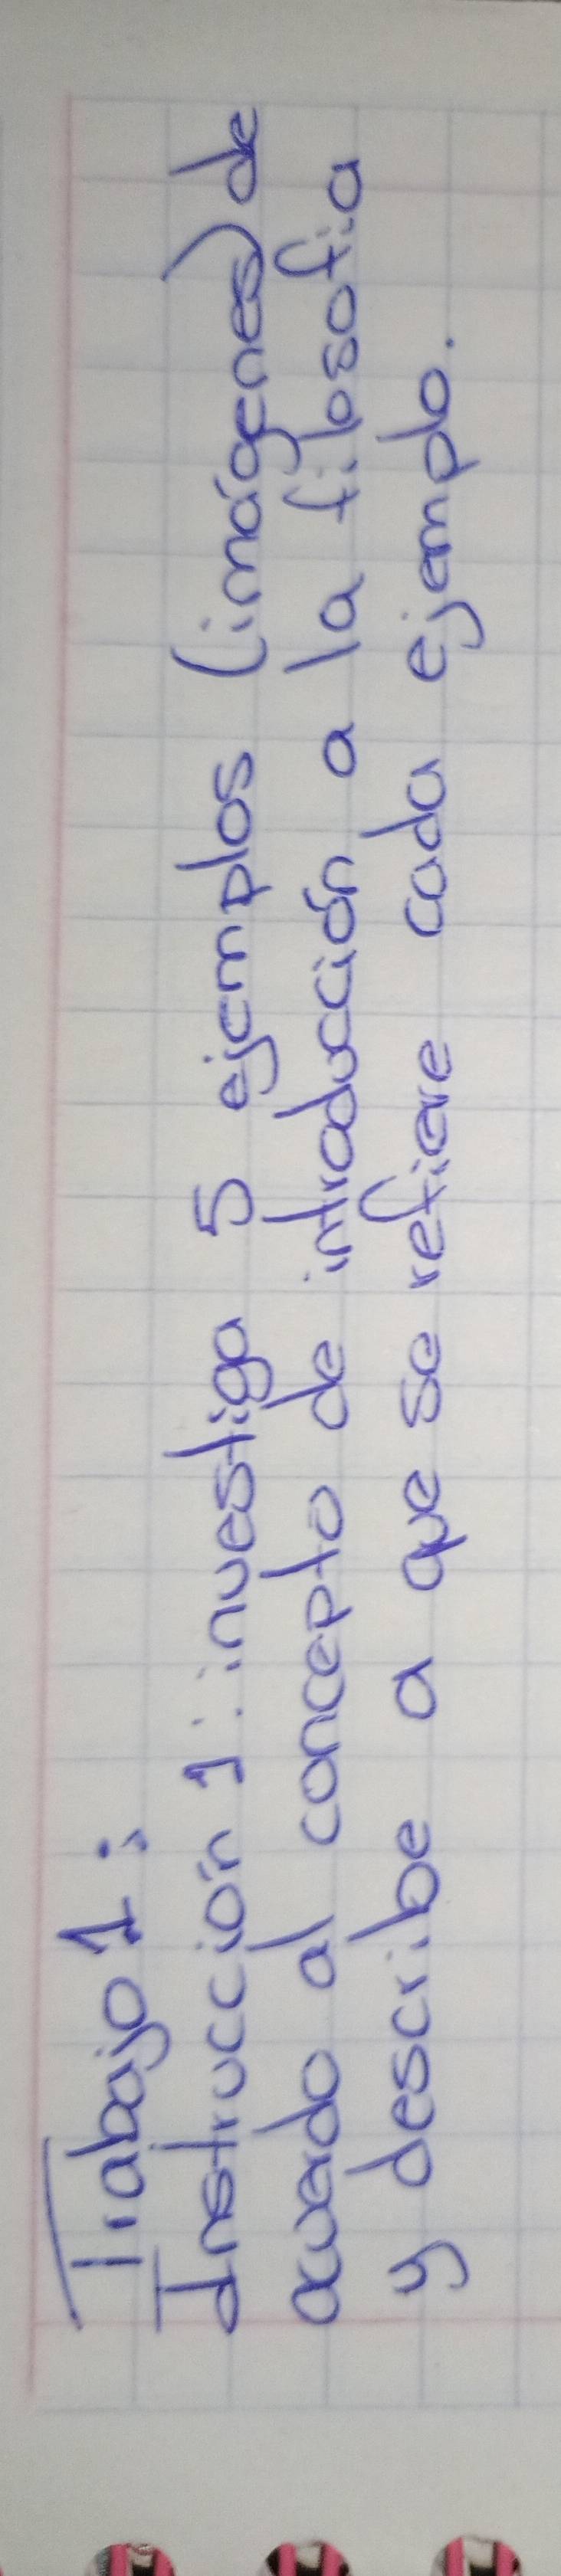 Trabajo 1:
Instrucción 1: investiga 5 ejemplos (imágenes) de
acuerdo al concepto de introducción a la filosofia
y describe a que se refiere cada ejemplo.